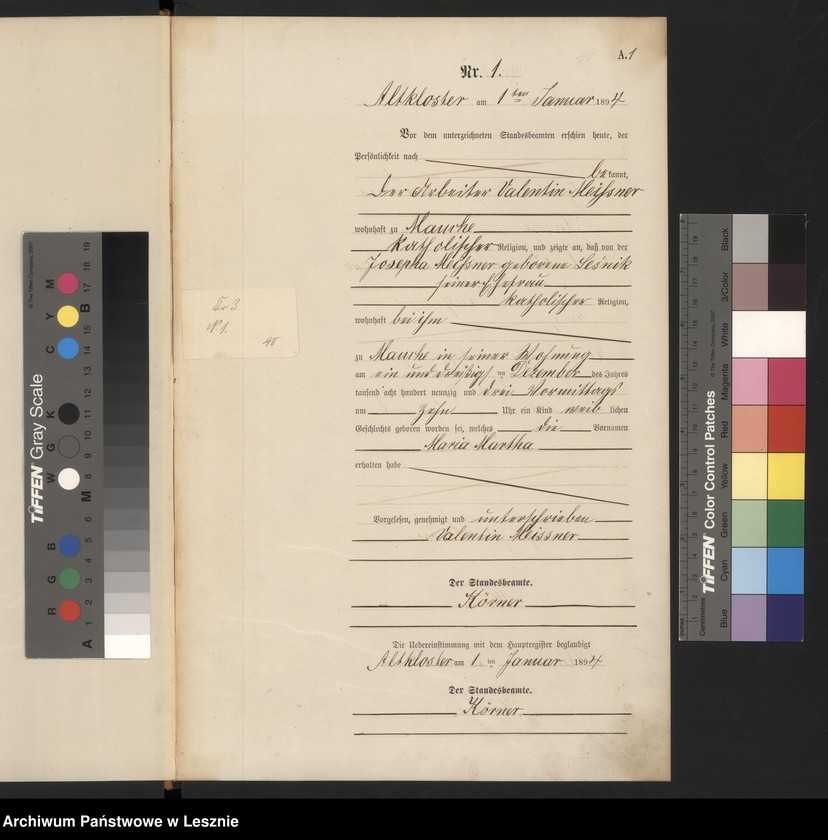 A.1
Nr. 1.
Altkloster am 1 ten Januar 1894
Vor dem unterzeichneten Standesbeamten erschien heute, der
Persönlichkeit nach
bekannt,
der Arbeiter Valentin Meißner
wohnhaft zu Mauche
katholischer Religion, und zeigte an, daß von der
Josepha Meißner geborene Leśnik
seiner Ehefrau
katholischer Religion,
wohnhaft bei ihm
zu Mauche in seiner Wohnung
am ein und dreißigsten Dezember des Jahres
tausend acht hundert neunzig und drei Vormittags
um zehn Uhr ein Kind weiblichen
Geschlechts geboren worden sei, welches die Vornamen
Maria Martha
erhalten habe
Vorgelesen, genehmigt und unterschrieben
Valentin Meissner
Der Standesbeamte.
Körner
Die Uebereinstimmung mit dem Hauptregister beglaubigt
Altkloster am 1 ten Januar 1894
Der Standesbeamte.
Körner
N. 1.
48
TIFFEN Gray Scale
© The Tiffen Company, 2007
R G B W G K C Y M
A 1 2 3 4 5 6 M 8 9 10 11 12 13 14 15 B 17 18 19
TIFFEN Color Control Patches
© The Tiffen Company, 2007
Inches
Centimetres
Blue Cyan Green Yellow Red Magenta White 3/Color Black
Archiwum Państwowe w Lesznie